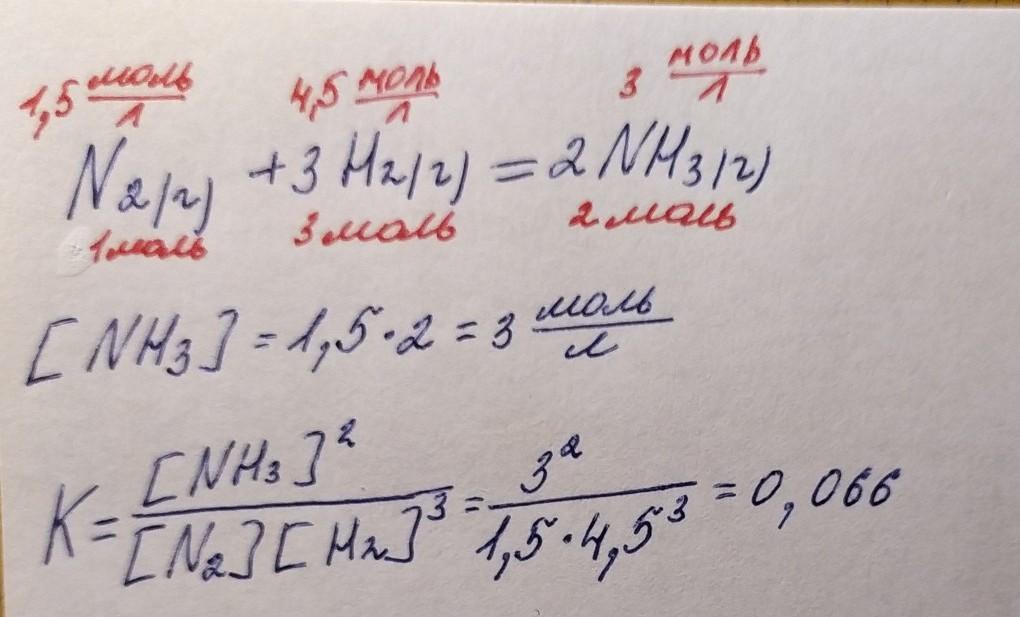 1,5 моль/л 4,5 моль/л 3 моль/л
N2(г) + 3 H2(г) = 2 NH3(г)
1моль 3моль 2моль
[NH3] = 1,5·2 = 3 моль/л
K = [NH3]²/[N2][H2]³ = 3²/1,5·4,5³ = 0,066